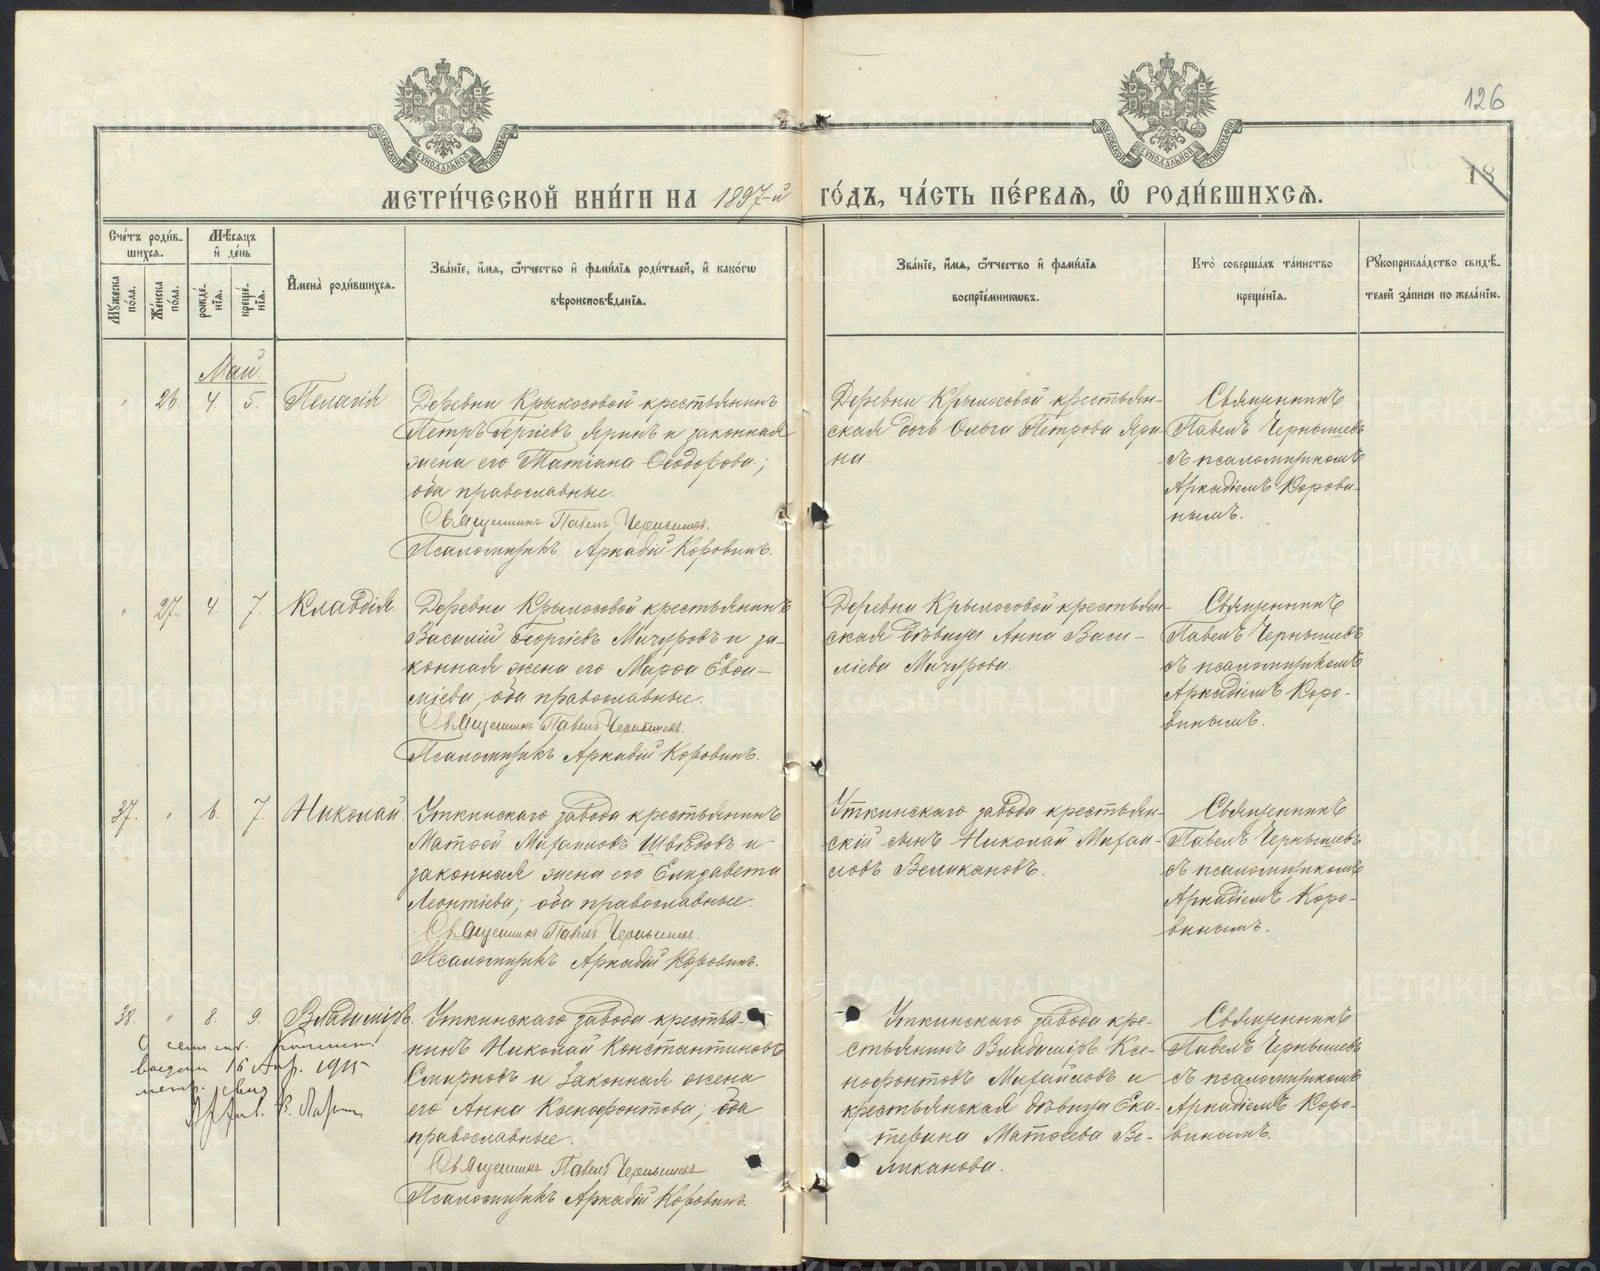 126
18
МЕТРИ́ЧЕСКОЙ КНИ́ГИ НА 1897-й ГО́ДЪ, ЧА́СТЬ ПЕ́РВАѦ, Ѽ РОДИ́ВШИХСѦ.
Сче́тъ роди́в-
шихсѧ.
Мѣ́сѧцъ
и҆ де́нь
Мꙋжеска
пола.
Же́нска
пола.
рожде́-
нїѧ.
креще́-
нїѧ.
И҆мена̀ роди́вшихсѧ.
Зва́нїе, и҆́мѧ, ѻ҆́тчество и҆ фами́лїѧ роди́телей, и҆ како́гѡ
вѣроисповѣ́данїѧ.
Зва́нїе, и҆́мѧ, ѻ҆́тчество и҆ фами́лїѧ
воспрїе́мникѡвъ.
Кто̀ соверша́лъ та́инство
креще́нїѧ.
Рꙋкоприкла́дство свидѣ́-
телей за́писи по жела́нїю.
Май.
" 26. 4. 5. Пелагія
Деревни Крылосовой крестьянинъ
Петръ Яринъ и законная
жена его Татіана Ѳеодорова;
оба православные.
Священникъ Павелъ Чернышевъ.
Псаломщикъ Аркадій Коровинъ.
Деревни Крылосовой крестьян-
ская дочь Ольга Петрова Яри-
на.
Священникъ
Павелъ Чернышевъ
съ псаломщикомъ
Аркадіемъ Корови-
нымъ.
" 27. 4. 7. Клавдія.
Деревни Крылосовой крестьянинъ
Василій Георгіевъ Мичуровъ и за-
конная жена его Марѳа Евѳи-
міева; оба православные.
Священникъ Павелъ Чернышевъ.
Псаломщикъ Аркадій Коровинъ.
Деревни Крылосовой крестьян-
ская дѣвица Анна Васи-
ліева Мичурова.
Священникъ
Павелъ Чернышевъ
съ псаломщикомъ
Аркадіемъ Коро-
винымъ.
37. " 6. 7. Николай.
Уткинскаго завода крестьянинъ
Матѳей Михаиловъ Шведовъ и
законная жена его Елизавета
Леонтіева; оба православные.
Священникъ Павелъ Чернышевъ.
Псаломщикъ Аркадій Коровинъ.
Уткинскаго завода крестьян-
скій сынъ Николай Михаи-
ловъ Великановъ.
Священникъ
Павелъ Чернышевъ
съ псаломщикомъ
Аркадіемъ Коро-
винымъ.
38. " 8. 9. Владиміръ.
Уткинскаго завода крестья-
нинъ Николай Константиновъ
Смирновъ и законная жена
его Анна Ксенофонтова; оба
православные.
Священникъ Павелъ Чернышевъ
Псаломщикъ Аркадій Коровинъ.
Уткинскаго завода кре-
стьянинъ Владиміръ Ксе-
нофонтовъ Михайловъ и
крестьянская дѣвица Ека-
терина Матѳеева Ве-
ликанова.
Священникъ
Павелъ Чернышевъ
съ псаломщикомъ
Аркадіемъ Коро-
винымъ.
1915